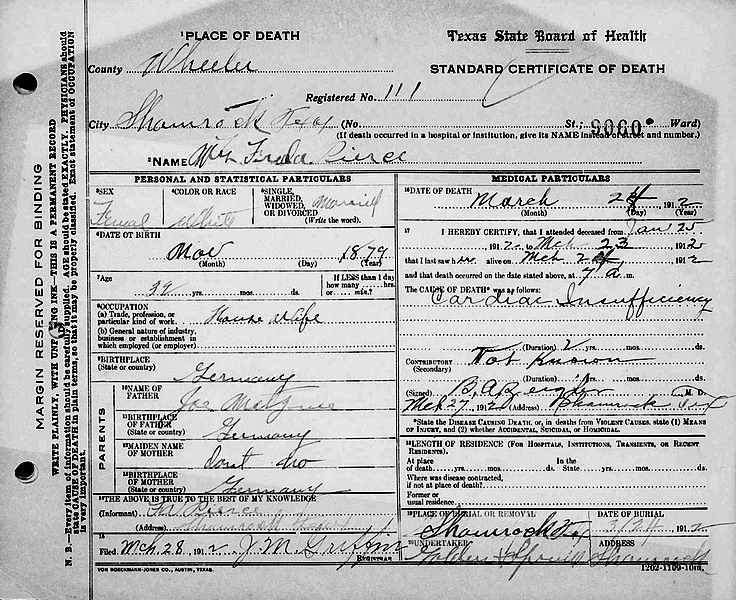 PLACE OF DEATH
Texas State Board of Health
County Wheeler
STANDARD CERTIFICATE OF DEATH
Registered No. 111
City Shamrock Texas (No. St.; 9060 Ward)
(If death occurred in a hospital or institution, give its NAME instead of street and number.)
²NAME Mrs Pierce
PERSONAL AND STATISTICAL PARTICULARS
³SEX
Femal
⁴COLOR OR RACE
White
⁵SINGLE, MARRIED, WIDOWED, OR DIVORCED
(Write the word).
Married
⁶DATE OF BIRTH
Nov 1879
(Month) (Day) (Year)
⁷Age
32 yrs. mos. ds.
If LESS than 1 day how many hrs. or min.?
⁸OCCUPATION
(a) Trade, profession, or particular kind of work. House Wife
(b) General nature of industry, business or establishment in which employed (or employer)
⁹BIRTHPLACE
(State or country)
Germany
PARENTS
¹⁰NAME OF FATHER
Joe
¹¹BIRTHPLACE OF FATHER
(State or country)
Germany
¹²MAIDEN NAME OF MOTHER
dont
¹³BIRTHPLACE OF MOTHER
(State or country)
Germany
¹⁴THE ABOVE IS TRUE TO THE BEST OF MY KNOWLEDGE
(Informant) Pierce
(Address) Shamrock
¹⁵
Filed Mch 28, 1912 J.M. Griffin
VON BOECKMANN-JONES CO., AUSTIN, TEXAS.
MEDICAL PARTICULARS
¹⁶DATE OF DEATH
March 24 1912
(Month) (Day) (Year)
¹⁷ I HEREBY CERTIFY, that I attended deceased from Jan 25
1912 to Mch 23 1912
that I last saw her alive on Mch 24 1912
and that death occurred on the date stated above, at 7 a m.
The CAUSE OF DEATH* was as follows:
Cardiac Insufficiency
(Duration) 2 yrs. mos. ds.
CONTRIBUTORY
(Secondary)
Not Known
(Duration) yrs. mos. ds.
(Signed) B.A. M. D.
Mch 27 1912 (Address) Shamrock Tex
*State the DISEASE CAUSING DEATH, or, in deaths from VIOLENT CAUSES, state (1) MEANS OF INJURY, and (2) whether ACCIDENTAL, SUICIDAL, or HOMICIDAL.
¹⁸LENGTH OF RESIDENCE (FOR HOSPITALS, INSTITUTIONS, TRANSIENTS, OR RECENT RESIDENTS).
At place of death yrs. mos. ds.
In the State yrs. mos. ds.
Where was disease contracted, if not at place of death?
Former or usual residence
¹⁹PLACE OF BURIAL OR REMOVAL
Shamrock Tex
DATE OF BURIAL
3/24 1912
²⁰UNDERTAKER
ADDRESS
Shamrock
1202-1109-10m.
MARGIN RESERVED FOR BINDING
WRITE PLAINLY, WITH UNFADING INK—THIS IS A PERMANENT RECORD
N. B.—Every item of information should be carefully supplied. AGE should be stated EXACTLY. PHYSICIANS should state CAUSE OF DEATH in plain terms, so that it may be properly classified. Exact statement of OCCUPATION is very important.